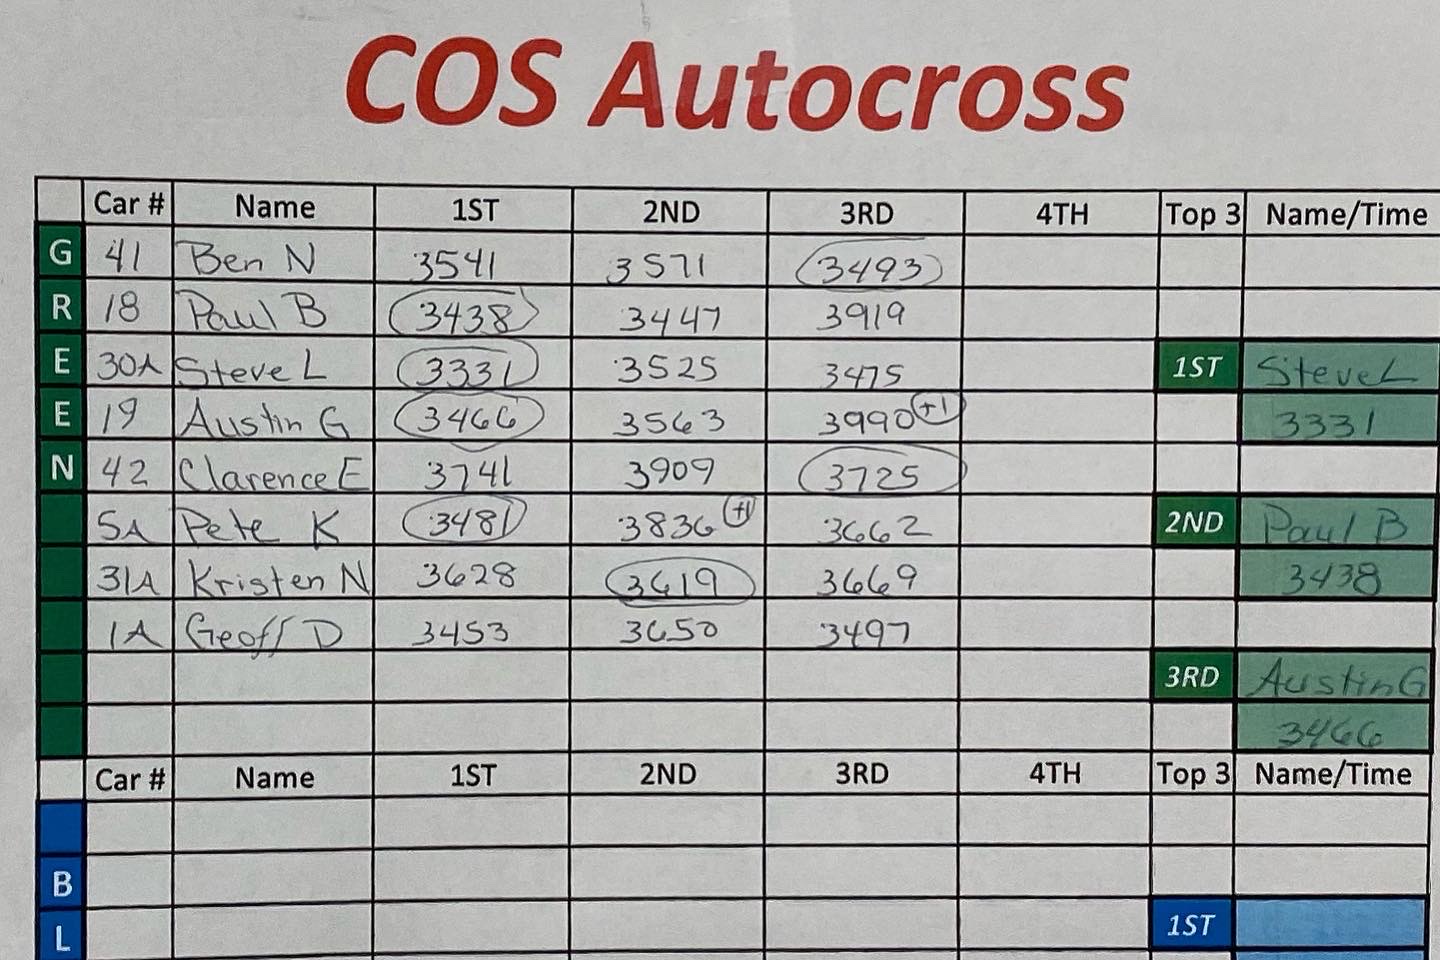 COS Autocross
Car # Name 1ST 2ND 3RD 4TH Top 3 Name/Time
G 41 Ben N 3541 3571 3493
R 18 Paul B 3438 3447 3919
E 30A Steve L 3331 3525 3475 1ST Steve L
E 19 Austin G 3466 3563 3990 +1 3331
N 42 Clarence E 3741 3909 3725
5A Pete K 3481 3836 +1 3662 2ND Paul B
31A Kristen N 3628 3619 3669 3438
1A Geoff D 3453 3650 3497
3RD Austin G
3466
Car # Name 1ST 2ND 3RD 4TH Top 3 Name/Time
B
L 1ST